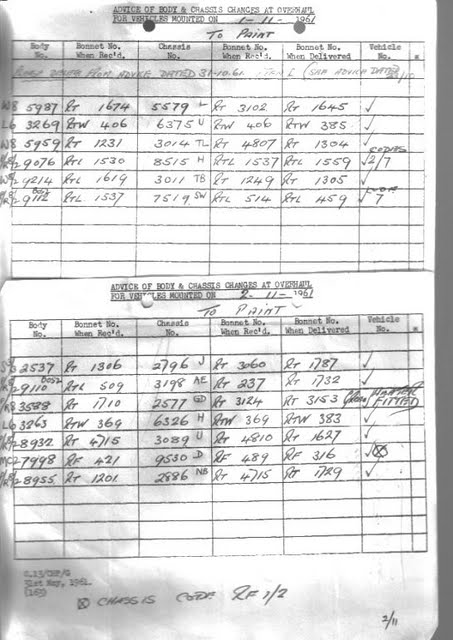 ADVICE OF BODY & CHASSIS CHANGES AT OVERHAUL
FOR VEHICLES MOUNTED ON 1-11-1961
TO PAINT
Body No. Bonnet No. When Rec'd. Chassis No. Bonnet No. When Rec'd. Bonnet No. When Delivered Vehicle No. *
FROM ADVICE DATED 31-10-61 (SEE ADVICE DATED
W8 5987 RT 1674 5579 L RT 3102 RT 1645 ✓
L6 3269 RTW 406 6375 U RTW 406 RTW 385 ✓
W8 5959 RT 1231 3014 TL RT 4807 RT 1304 ✓
9076 RTL 1530 8515 H RTL 1537 RTL 1559 ✓ 2/7
9214 RTL 1619 3011 TB RT 1249 RT 1305 ✓
9112 RTL 1537 7519 SW RTL 514 RTL 459 ✓ 7
ADVICE OF BODY & CHASSIS CHANGES AT OVERHAUL
FOR VEHICLES MOUNTED ON 2-11-1961
TO PAINT
Body No. Bonnet No. When Rec'd. Chassis No. Bonnet No. When Rec'd. Bonnet No. When Delivered Vehicle No. *
2537 RT 1306 2796 J RT 3060 RT 1787 ✓
9110 RTL 509 3198 AE RT 237 RT 1732 ✓
3588 RT 1710 2577 GD RT 3124 RT 3153 FITTED
L6 3263 RTW 369 6326 H RTW 369 RTW 383 ✓
8932 RT 4715 3089 U RT 4810 RT 1627 ✓
7998 RF 421 9530 D RF 489 RF 316 ✓ ⊗
8955 RT 1201 2886 NB RT 4715 RT 1729 ✓
31st May, 1961.
(163)
⊗ CHASSIS CODE RF 1/2
2/11